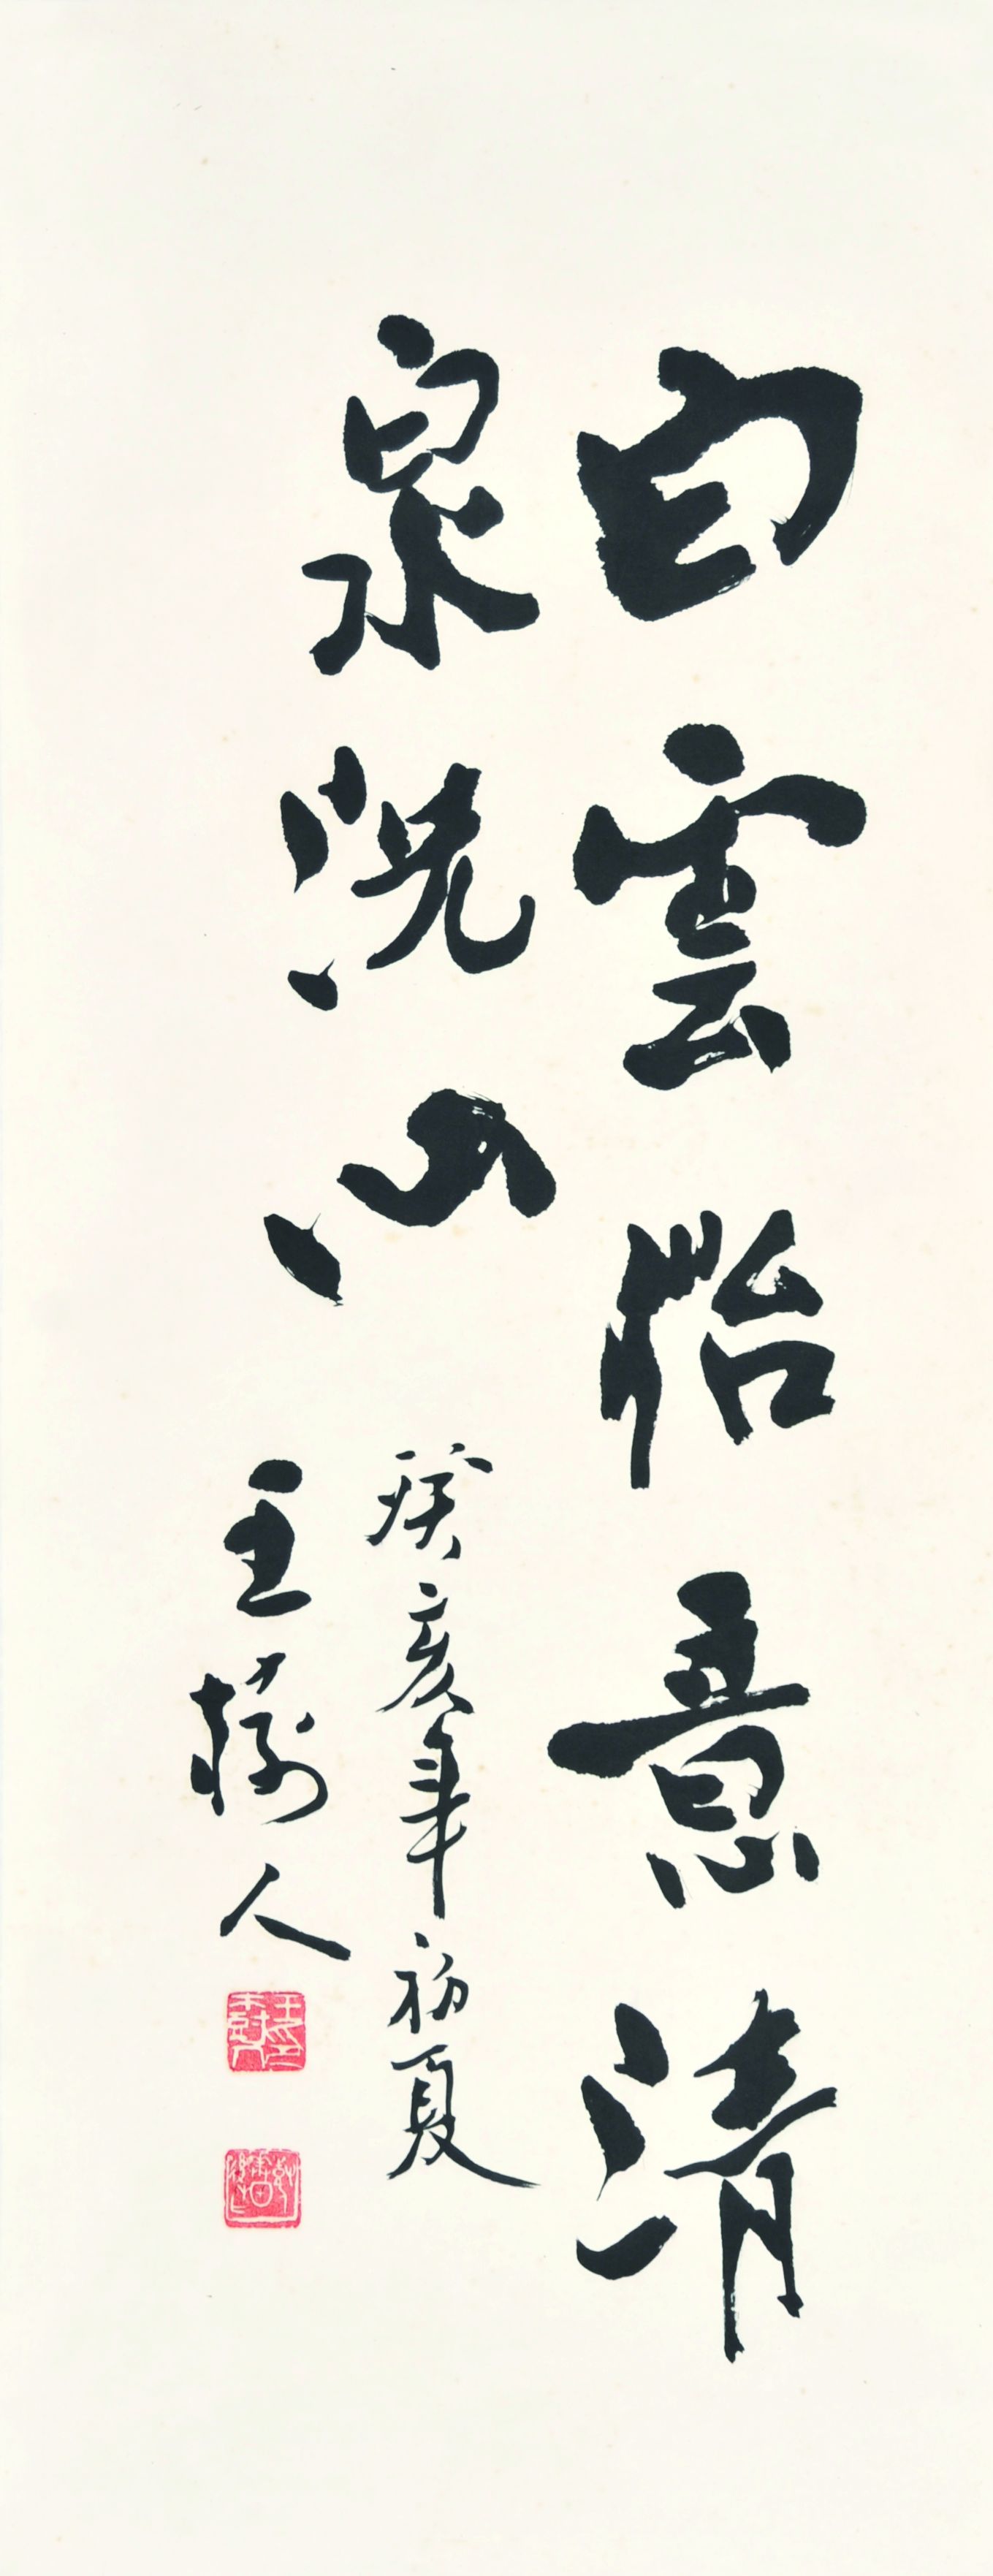 白雲怡意清
泉洗心
癸亥年初夏
王樹人